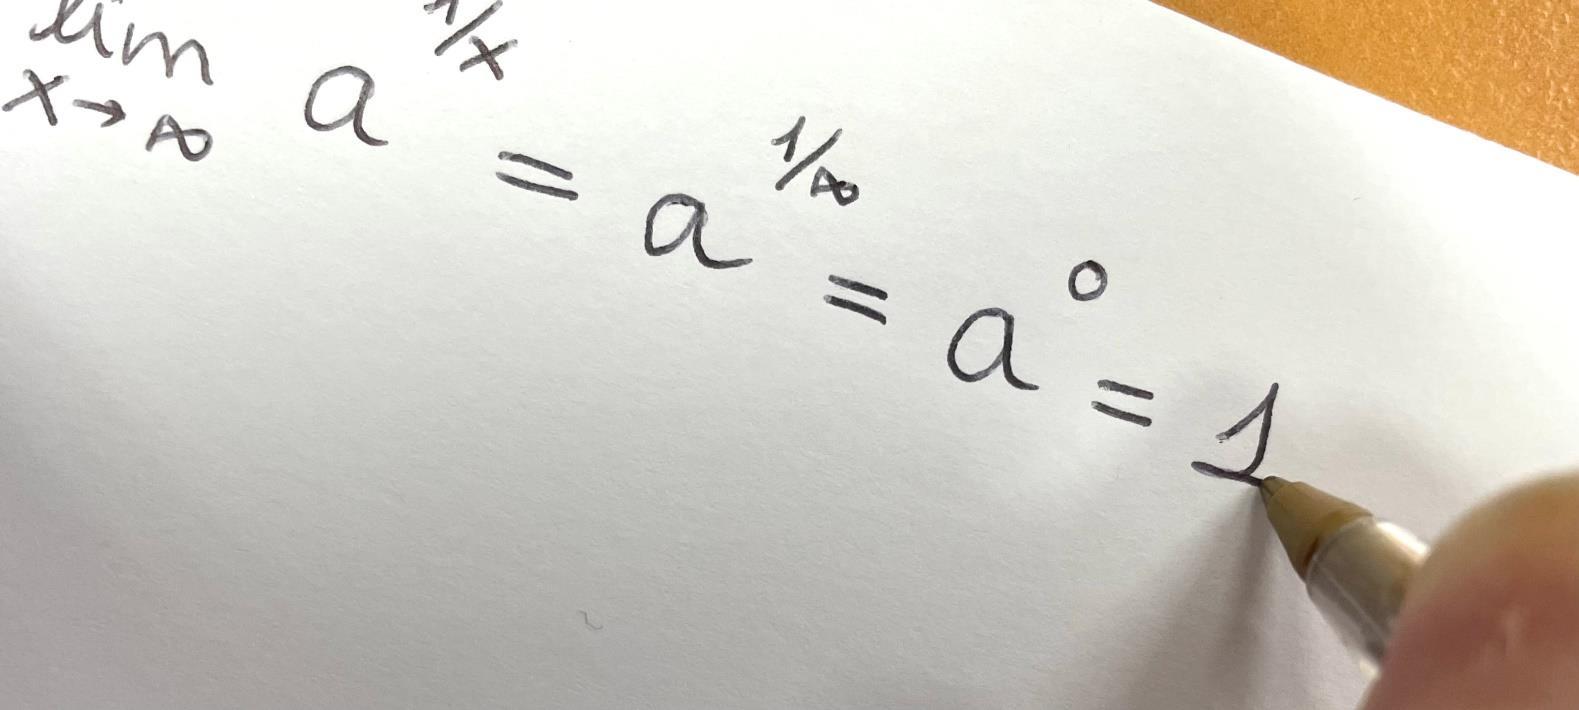 lim x→∞ a^1/x = a^1/∞ = a^0 = 1